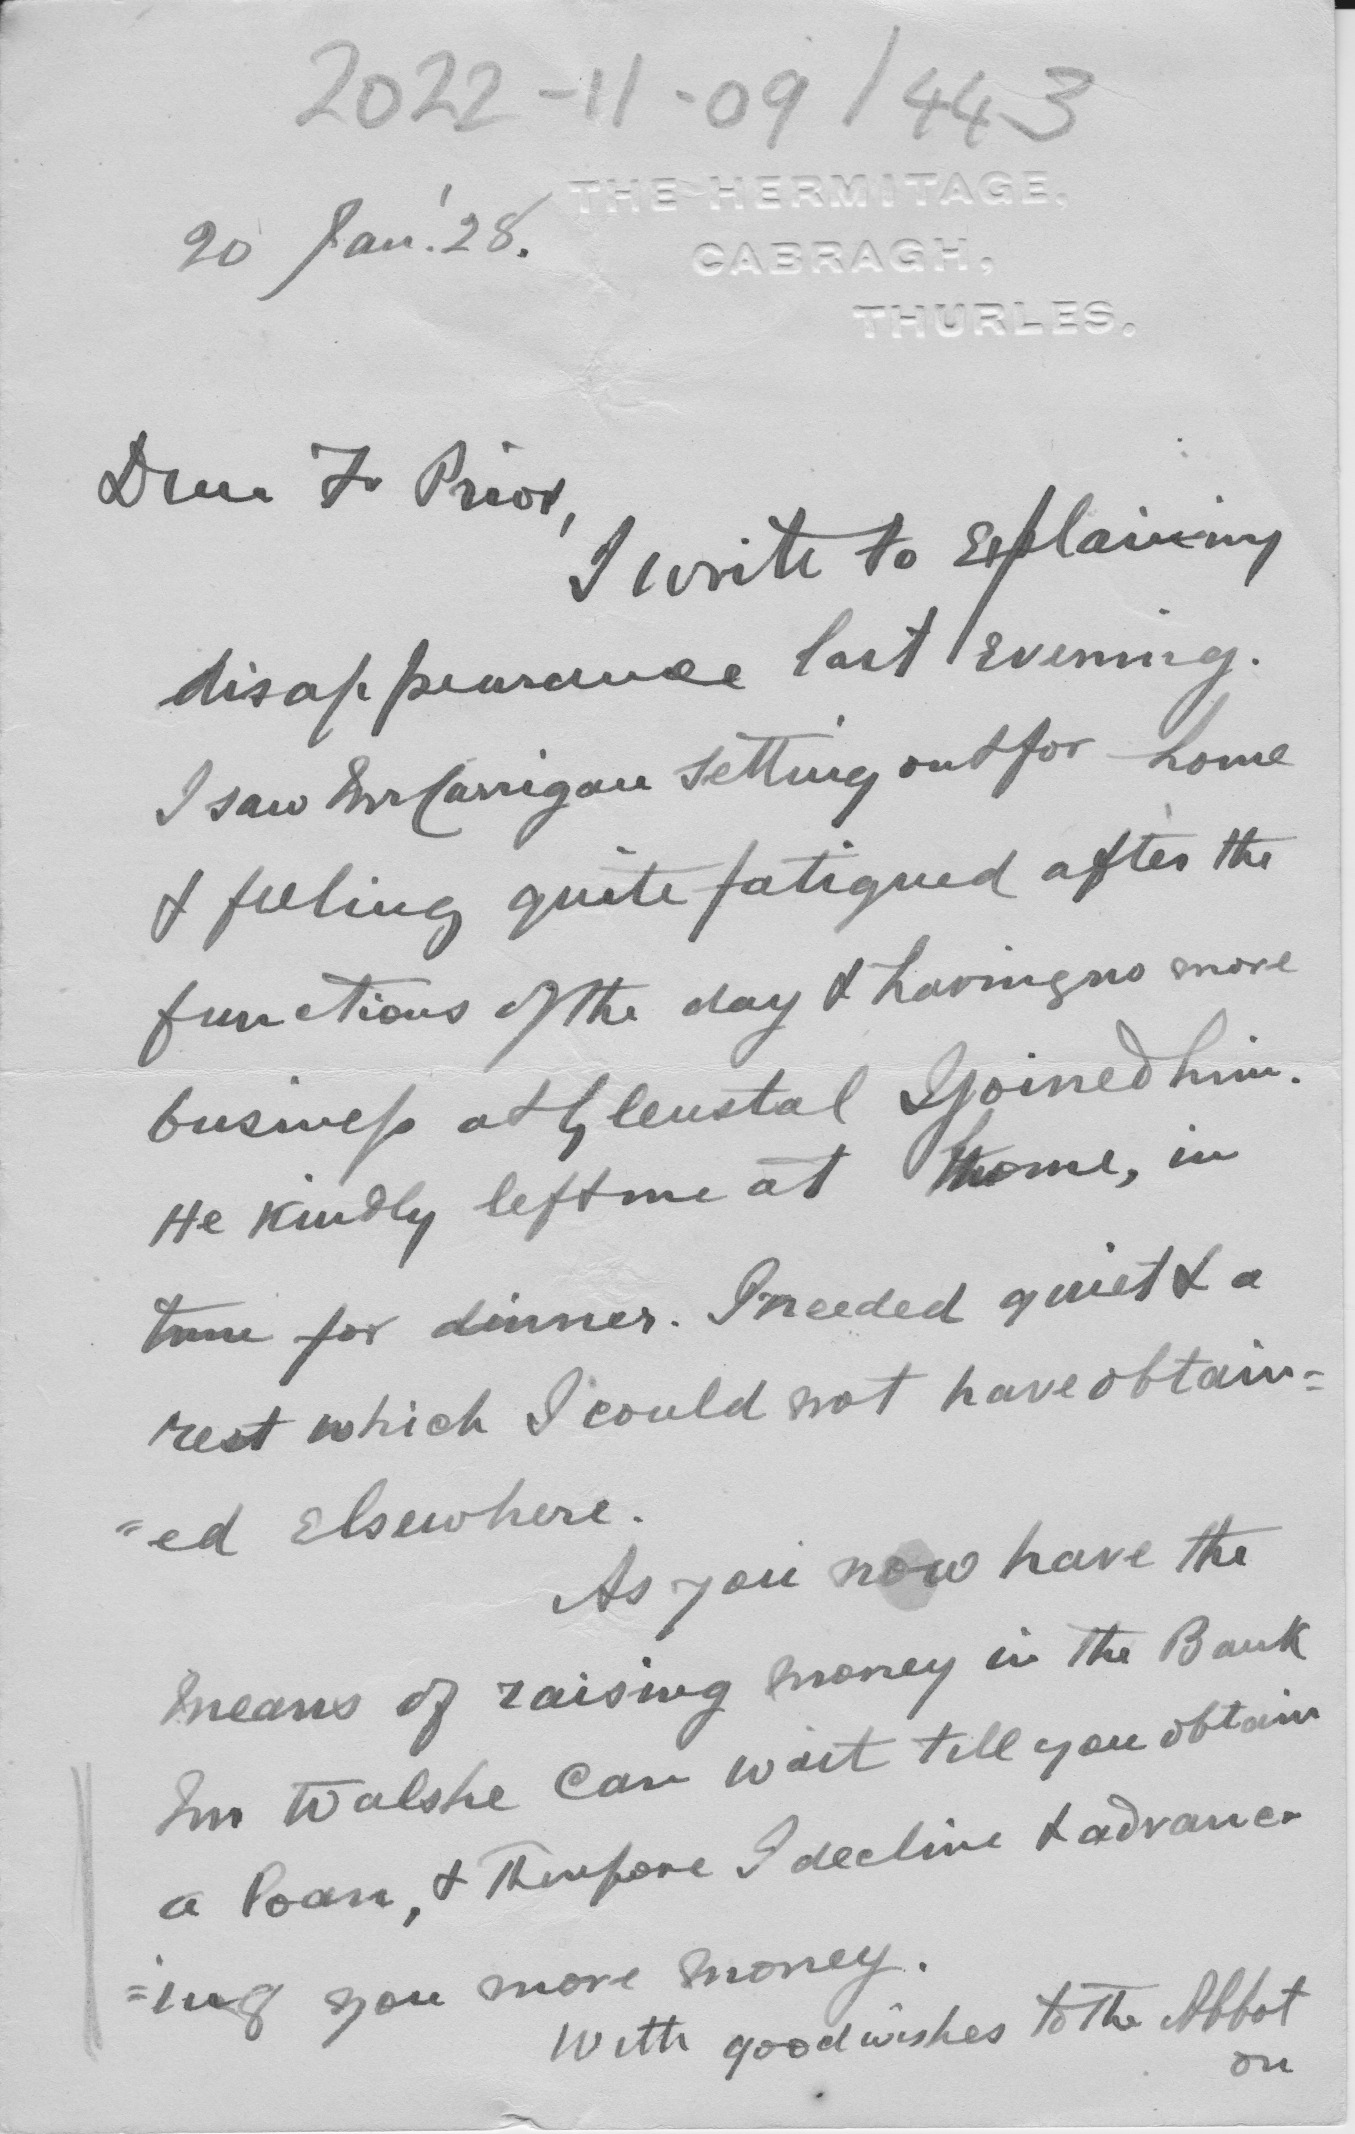 2022-11-09/443
THE HERMITAGE,
CABRAGH,
THURLES.
20 Jan'. '28.
Dear Fr Prior,
I write to explain my
disappearance last evening.
I saw Mr Carrigan setting out for home
& feeling quite fatigued after the
functions of the day & having no more
business at Glenstal I joined him.
He kindly left me at home, in
time for dinner. I needed quiet & a
rest which I could not have obtain=
=ed elsewhere.
As you now have the
means of raising money in the Bank
Mr Walshe can wait till you obtain
a loan, & therefore I decline & advanc-
=ing you more money.
With good wishes to the Abbot
on